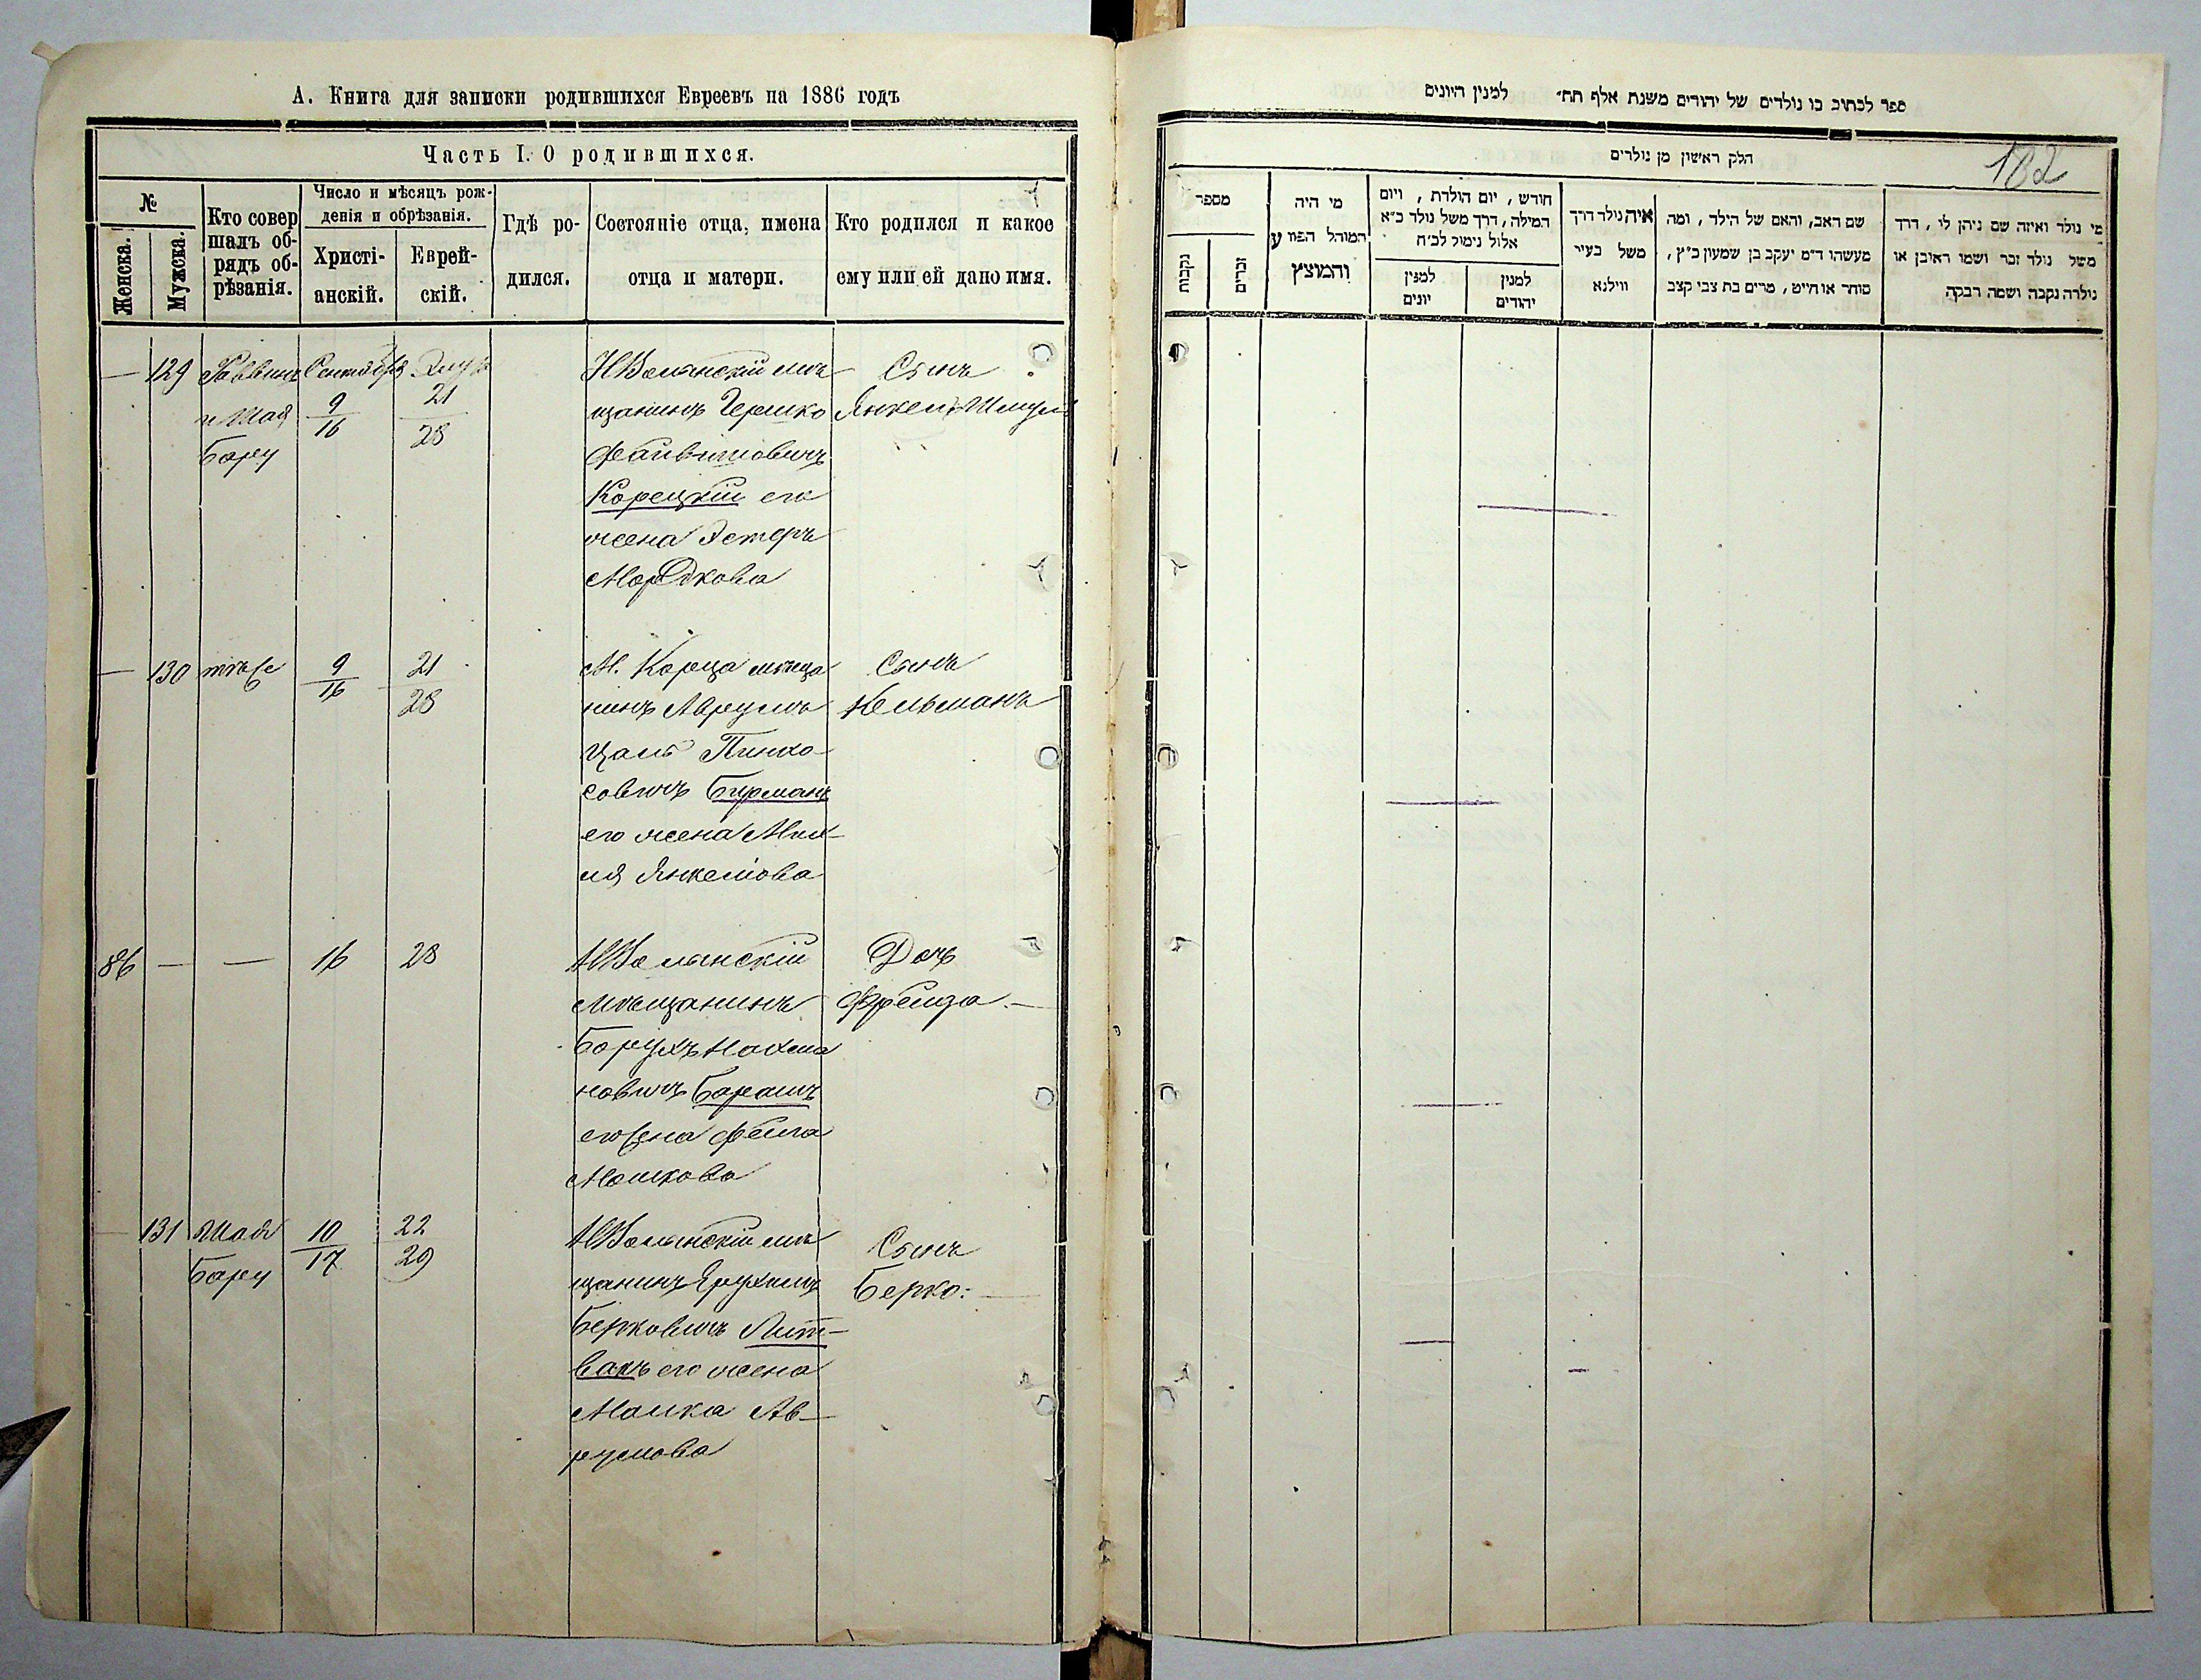 А. Книга для записки родившихся Евреевъ на 1886 годъ
Часть I. О родившихся.
№
Женска.
Мужска.
Кто совер
шалъ об-
рядъ об-
рѣзанія.
Число и мѣсяцъ рож-
денія и обрѣзанія.
Христі-
анскій.
Еврей-
скій.
Гдѣ ро-
дился.
Состояніе отца, имена
отца и матери.
Кто родился и какое
ему или ей дано имя.
— 129 Раввинъ Сентября Элулъ
и Шая 9 21
16 28
Бару
НВолынскій мѣ-
щанинъ Гершко
Файвишовичъ
Корецкій его
жена Эстеръ
Мордкова
Сынъ
Янкель Шмуль
— 130 тѣже 9 21
16 28
М. Корца мѣща
нинъ Аврумъ
Цаль Пинхо-
совичъ Бирманъ
его жена
Янкелова
Сынъ
Кельманъ
86 — — 16 28
НВолынскій
мѣщанинъ
Борухъ Нахма
новичъ Барашъ
его жена Фейга
Мошкова
Дочь
Фрейда.—
— 131 Шая 10 22
Бару 17 29
НВолынскій мѣ
щанинъ Ерухимъ
Берковичъ Лит-
вакъ его жена
Малка Ав-
румова
Сынъ
Берко:—
ספר לכתוב בו נולדים של יהודים משנת אלף תת״ למנין היונים
182
חלק ראשון מן נולדים
מספר
נקבות
זכרים
מי היה
המוהל הפורע
והמוצץ
חודש, יום הולדת, ויום
המילה, דרך משל נולד כ״א
אלול נימול לכ״ח
למנין
יונים
למנין
יהודים
איה נולד דרך
משל בעיר
ווילנא
שם האב, והאם של הילד, ומה
מעשהו ד״מ יעקב בן שמעון כ״ץ,
סוחר או חייט, מרים בת צבי קצב
מי נולד ואיזה שם ניתן לו, דרך
משל נולד זכר ושמו ראובן או
נולדה נקבה ושמה רבקה